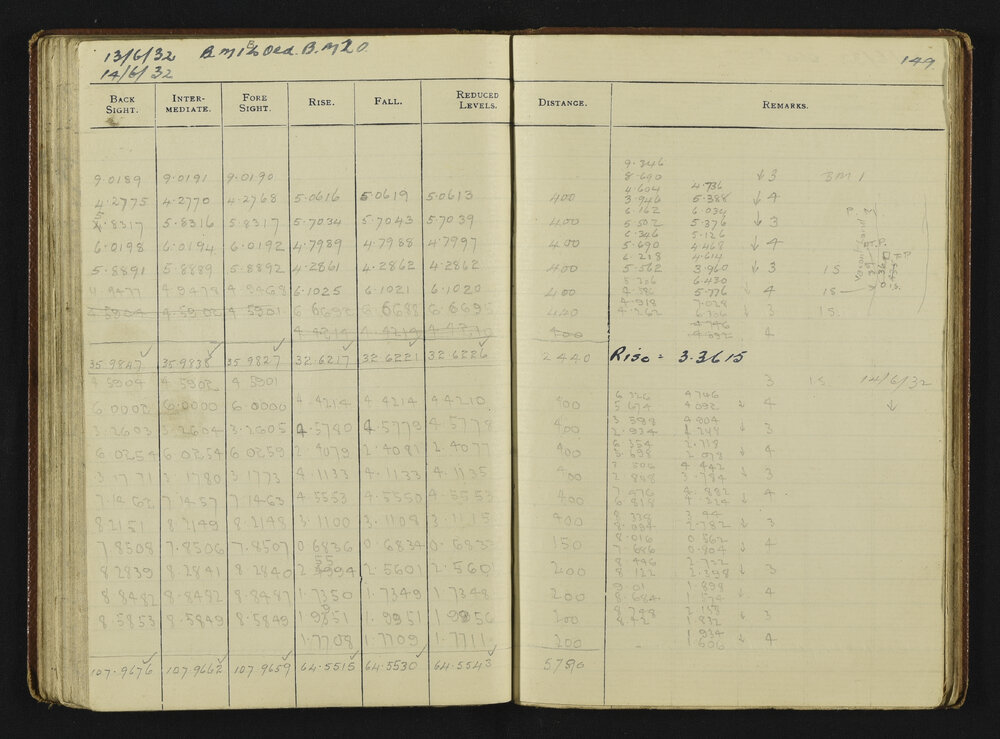 13/6/32 B.M. 1 to Old. B.M 20.
14/6/32
149
BACK SIGHT. INTER-MEDIATE. FORE SIGHT. RISE. FALL. REDUCED LEVELS. DISTANCE. REMARKS.
9.346
9.0189 9.0191 9.0190 8.690 ↓ 3 BM 1
4.604 4.736
4.2775 4.2770 4.2768 5.0616 5.0619 5.0613 400 3.946 5.388 ↓ 4
6.162 6.034
5.8317 5.8316 5.8317 5.7034 5.7043 5.7039 400 5.502 5.376 ↓ 3
6.346 5.126
6.0198 6.0194 6.0192 4.7989 4.7988 4.7997 400 5.690 4.468 ↓ 4
6.218 4.614
5.8891 5.8889 5.8892 4.2861 4.2862 4.2862 400 5.562 3.960 ↓ 3 IS
6.430
4.9477 4.9478 4.9468 6.1025 6.1021 6.1020 400 5.776 ↓ 4 IS
4.918 7.028
4.5904 4.5902 4.5901 6.6692 6.6688 6.6695 440 4.262 ↓ 3 IS
4.746
4.4214 4.4214 4.4210 400 4.092 4
35.9847 35.9838 35.9827 32.6217 32.6221 32.6226 2440 Rise = 3.3615
4.5904 4.5902 4.5901 3 IS 14/6/32
6.326 4.746
6.0002 6.0000 6.0000 4.4214 4.4214 4.4210 400 5.674 4.092 ↓ 4
3.588 4.904
3.2603 3.2604 3.2605 4.5780 4.5779 4.5778 400 2.934 4.248 ↓ 3
6.354 2.738
6.0254 6.0254 6.0259 2.4079 2.4081 2.4077 400 5.698 2.078 ↓ 4
4.442
3.1771 3.1780 3.1773 4.1133 4.1133 4.1135 400 2.848 3.784 ↓ 3
7.476 4.882
7.1462 7.1457 7.1463 4.5553 4.5550 4.5553 400 6.818 4.224 ↓ 4
8.378 3.44
8.2151 8.2149 8.2148 3.1100 3.1108 3.1115 400 2.782 ↓ 3
8.016 0.562
7.8508 7.8506 7.8507 0.6836 0.6834 0.6833 150 7.686 0.804 ↓ 4
8.446 2.722
8.2839 8.2841 8.2840 2.5601 2.5601 200 8.122 2.398 ↓ 3
9.01 1.898
8.8482 8.8482 8.8487 1.7350 1.7349 1.7348 200 8.684 1.574 ↓ 4
8.748 2.158
8.5853 8.5849 8.5849 1.9951 1.9951 1.9950 200 8.42 1.832 ↓ 3
1.934
1.7708 1.7709 1.7711 200 1.606 ↓ 4
107.9676 107.9662 107.9659 64.5515 64.5530 64.5543 5790